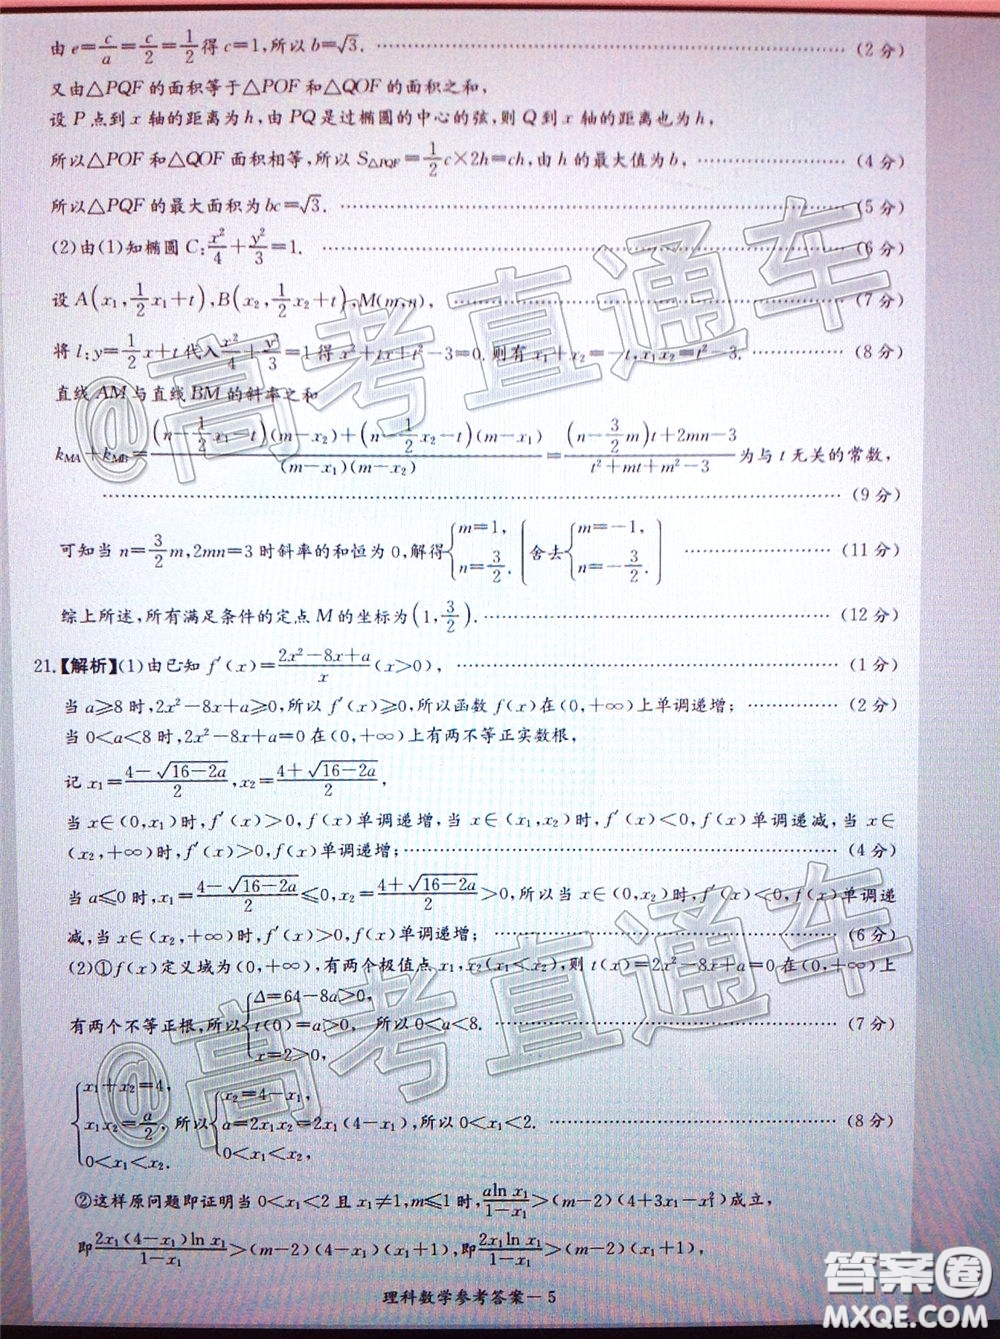 由 e=c/a=c/2=1/2得 c=1,所以 b=√3. ……(2 分)
又由△PQF 的面积等于△POF 和△QOF 的面积之和,
设 P 点到 x 轴的距离为 h,由 PQ 是过椭圆的中心的弦,则 Q 到 x 轴的距离也为 h,
所以△POF 和△QOF 面积相等,所以 S△PQF=1/2c×2h=ch,由 h 的最大值为 b, ……(4 分)
所以△PQF 的最大面积为 bc=√3. ……(5 分)
(2)由(1)知椭圆 C:x²/4+y²/3=1. ……(6 分)
设 A(x₁,1/2x₁+t),B(x₂,1/2x₂+t),M(m,n), ……(7 分)
将 l:y=1/2x+t 代入x²/4+y²/3=1得 x²+tx+t²-3=0,则有 x₁+x₂=-t,x₁x₂=t²-3. ……(8 分)
直线 AM 与直线 BM 的斜率之和
kMA+kMB=((n-1/2x₁-t)(m-x₂)+(n-1/2x₂-t)(m-x₁))/((m-x₁)(m-x₂))=((n-3/2m)t+2mn-3)/(t²+mt+m²-3)为与 t 无关的常数,
……(9 分)
可知当 n=3/2m,2mn=3 时斜率的和恒为 0,解得{m=1, n=3/2. (舍去{m=-1, n=-3/2.) ……(11 分)
综上所述,所有满足条件的定点 M 的坐标为(1,3/2). ……(12 分)
21.【解析】(1)由已知 f′(x)=(2x²-8x+a)/x(x>0), ……(1 分)
当 a≥8 时,2x²-8x+a≥0,所以 f′(x)≥0,所以函数 f(x)在(0,+∞)上单调递增; ……(2 分)
当 0<a<8 时,2x²-8x+a=0 在(0,+∞)上有两不等正实数根,
记 x₁=(4-√(16-2a))/2,x₂=(4+√(16-2a))/2,
当 x∈(0,x₁)时,f′(x)>0,f(x)单调递增,当 x∈(x₁,x₂)时,f′(x)<0,f(x)单调递减,当 x∈
(x₂,+∞)时,f′(x)>0,f(x)单调递增; ……(4 分)
当 a≤0 时,x₁=(4-√(16-2a))/2≤0,x₂=(4+√(16-2a))/2>0,所以当 x∈(0,x₂)时,f′(x)<0,f(x)单调递
减,当 x∈(x₂,+∞)时,f′(x)>0,f(x)单调递增; ……(6 分)
(2)①f(x)定义域为(0,+∞),有两个极值点 x₁,x₂(x₁<x₂),则 t(x)=2x²-8x+a=0 在(0,+∞)上
有两个不等正根,所以{Δ=64-8a>0, t(0)=a>0, x=2>0, 所以 0<a<8. ……(7 分)
{x₁+x₂=4, x₁x₂=a/2, 0<x₁<x₂. 所以{x₂=4-x₁, a=2x₁x₂=2x₁(4-x₁),所以 0<x₁<2. 0<x₁<x₂, ……(8 分)
②这样原问题即证明当 0<x₁<2 且 x₁≠1,m≤1 时,(aln x₁)/(1-x₁)>(m-2)(4+3x₁-x₁²)成立,
即(2x₁(4-x₁)ln x₁)/(1-x₁)>(m-2)(4-x₁)(x₁+1),即(2x₁ln x₁)/(1-x₁)>(m-2)(x₁+1),
理科数学参考答案—5
@高考直通车
@高考直通车
答案圈
MXQE.COM